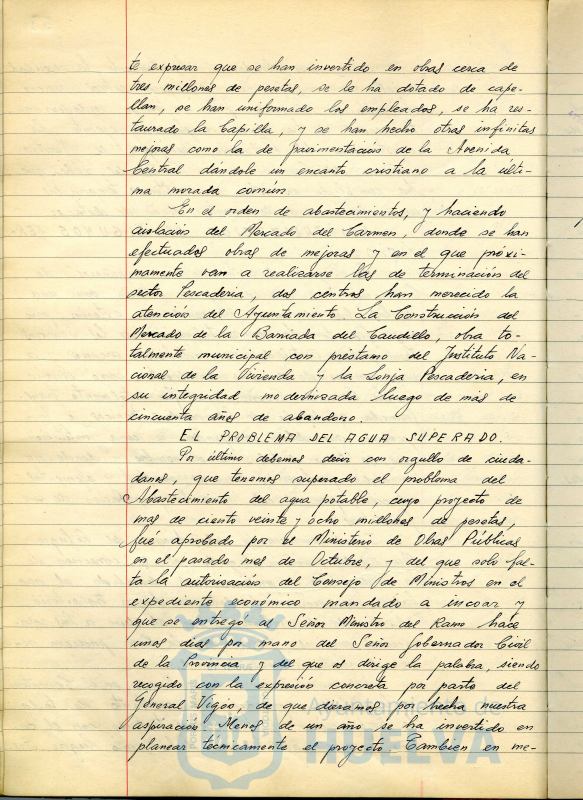 te expresar que se han invertido en obras cerca de
tres millones de pesetas, se le ha dotado de cape-
llan, se han uniformado los empleados, se ha res-
taurado la Capilla, y se han hecho otras infinitas
mejoras como la de pavimentación de la Avenida
Central dándole un encanto cristiano a la últi-
ma morada común.
En el orden de abastecimientos, y haciendo
aislación del Mercado del Carmen, donde se han
efectuados obras de mejoras y en el que próxi-
mamente van a realizarse las de terminación del
sector Pescaderia, dos centros han merecido la
atención del Ayuntamiento. La Construcción del
Mercado de la Barriada del Caudillo, obra to-
talmente municipal con préstamo del Instituto Na-
cional de la Vivienda y la Lonja Pescaderia, en
su integridad modernizada luego de más de
cincuenta años de abandono.
EL PROBLEMA DEL AGUA SUPERADO.
Por último debemos decir con orgullo de ciuda-
danos, que tenemos superado el problema del
Abastecimiento del agua potable, cuyo proyecto de
mas de ciento veinte y ocho millones de pesetas,
fué aprobado por el Ministerio de Obras Públicas
en el pasado mes de Octubre, y del que solo fal-
ta la autorización del Consejo de Ministros en el
expediente económico mandado a incoar y
que se entregó al Señor Ministro del Ramo hace
unos dias por mano del Señor Gobernador Civil
de la Provincia y del que os dirige la palabra, siendo
recogido con la expresión concreta por parte del
General Vigón, de que dieramos por hecha nuestra
aspiración. Menos de un año se ha invertido en
planear técnicamente el proyecto. Tambien en me-
Ayuntamiento de
HUELVA